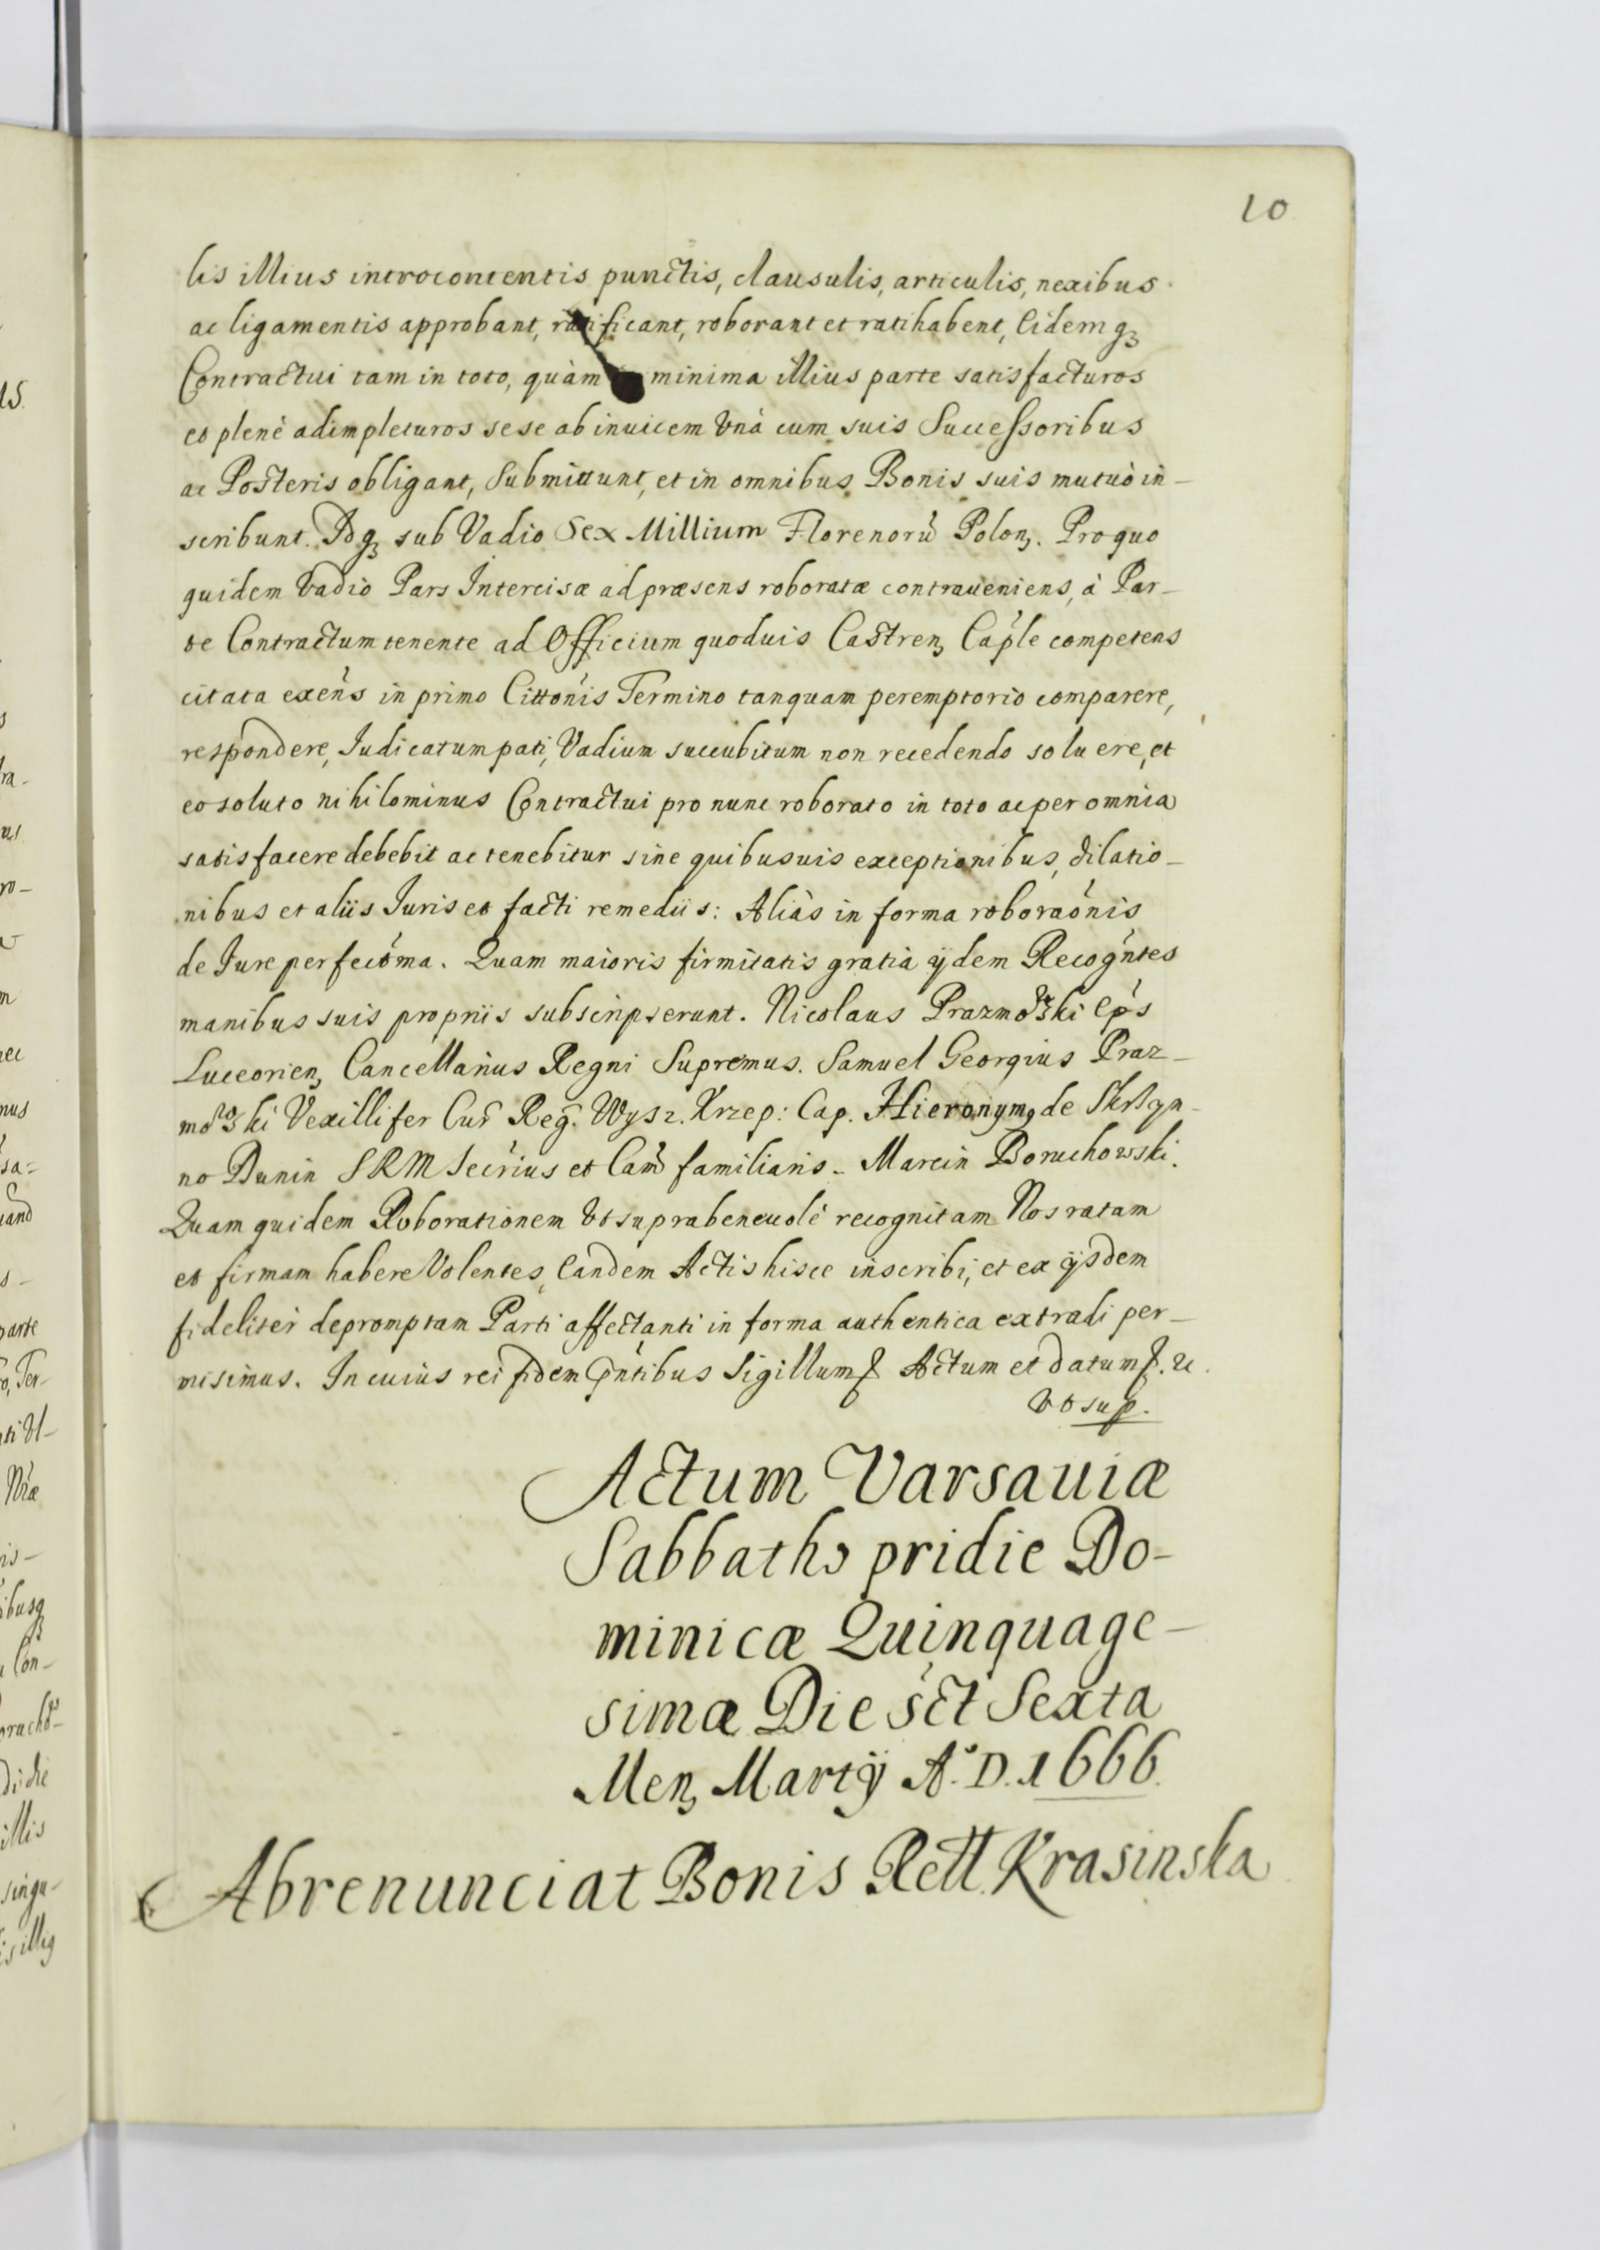 10
lis illius introcontentis punctis, clausulis, articulis, nexibus
ac ligamentis approbant, ratificant, roborant et ratihabent, Eidemq3
Contractui tam in toto, quàm minima illius parte satisfacturos
et plenè adimpleturos sese ab inuicem Vnà cum suis Successoribus
ac Posteris obligant, Submittunt, et in omnibus Bonis suis mutuò in-
scribunt. Idq3 sub Vadio Sex Millium Florenorũ Polon3. Pro quo
quidem Vadio Pars Intercisæ ad præsens roboratæ contraueniens, à Par-
te Contractum tenente ad Officium quoduis Castren3 Caple competens
citata exens in primo Cittonis Termino tanquam peremptorio comparere,
respondere, Iudicatum pati, Vadium succubitum non recedendo soluere, et
eo soluto nihilominus Contractui pro nunc roborato in toto ac per omnia
satisfacere debebit ac tenebitur sine quibusuis exceptionibus, dilatio-
nibus et aliis Iuris et facti remediis: Aliàs in forma roboraonis
de Iure perfectoma. Quam maioris firmitatis gratià ijdem Recogntes
manibus suis propriis subscripserunt. Nicolaus Prazmowski Eps
Luceorien3 Cancellarius Regni Supremus. Samuel Georgius Praz-
mowski Vexillifer Cur Reg. Wysz. Krzep: Cap. Hieronym9 de Skrzyn-
no Dunin SRM Secrius et Cam familiaris - Marcin Boruchowski.
Quam quidem Roborationem Vt supra beneuolè recognitam Nos ratam
et firmam habere Volentes, Eandem Actis hisce inscribi, et ex ijsdem
fideliter depromptam Parti affectanti in forma authentica extradi per-
misimus. In cuius rei fidem pntibus Sigillum Actum et datum
Vt sup.
Actum Varsauiæ
Sabbatho pridie Do-
minicæ Quinquage-
simæ Die sct Sexta
Men3 Martij A.° D. 1666.
Abrenunciat Bonis Rell Krasinska